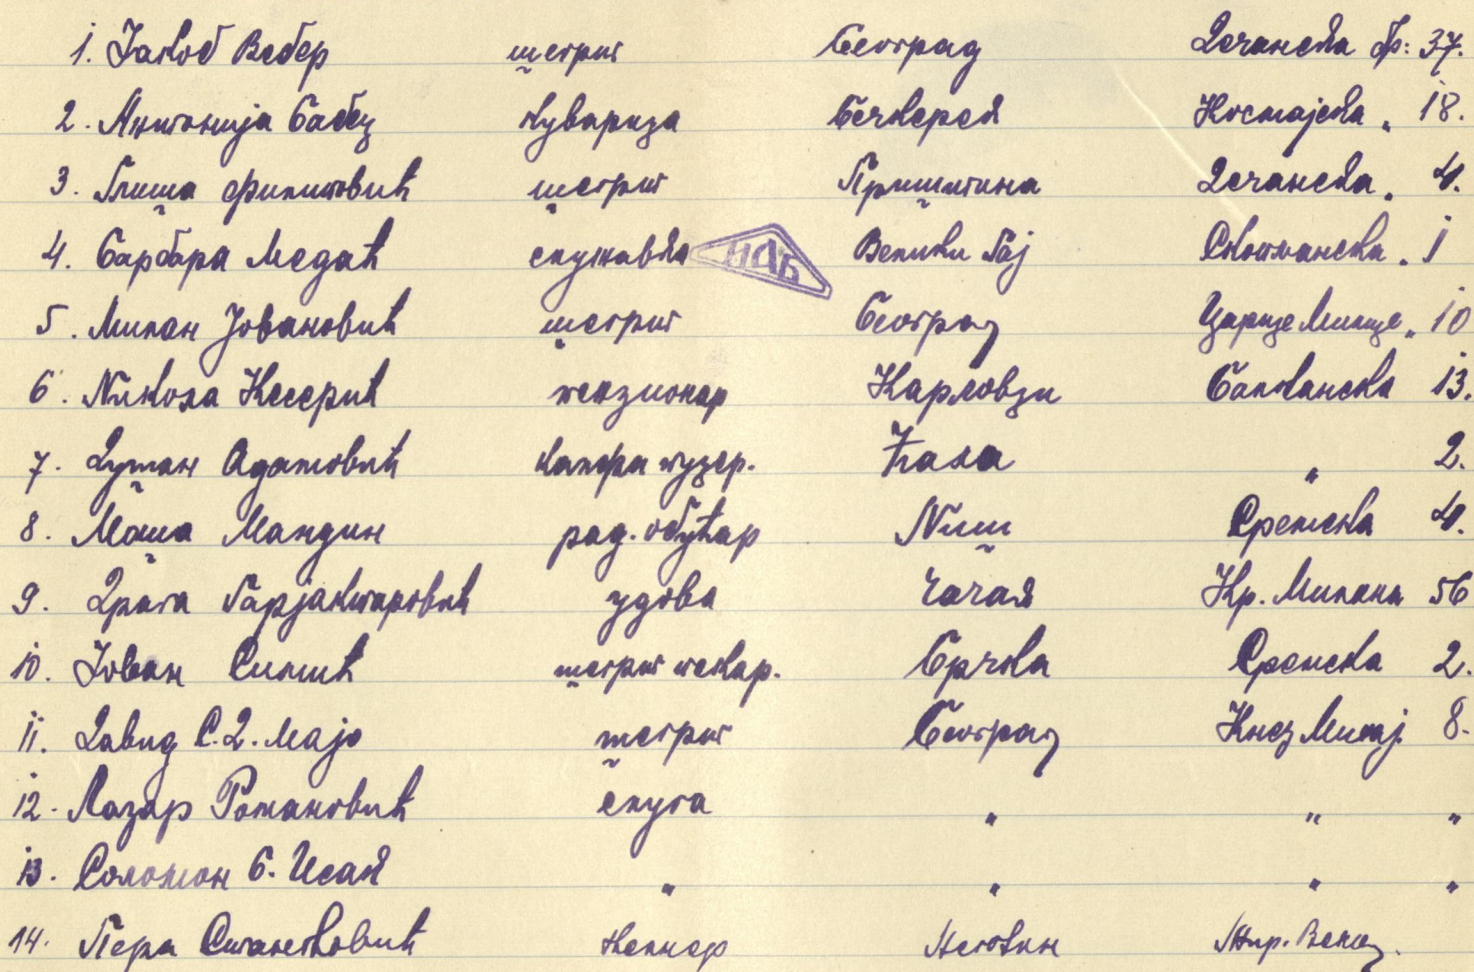 1. Јакоб Вебер шегрт Београд Дечанска бр: 37.
2. Антонија Бабец куварица Бечкерек Космајска „ 18.
3. Глиша Филиповић шегрт Приштина Дечанска „ 4.
4. Барбара Медаћ служавка ИАБ Велики Гај Скопљанска „ 1
5. Милан Јовановић шегрт Београд Царице Милице „ 10
6. Никола Кесерић пензионер Карловци Балканска 13.
7. Душан Адамовић Ћала „ 2.
8. Маша Мандин рад. обућар Ниш Сремска 4.
9. Драга Барјактаровић удова Чачак Кр. Милана 56
10. Јован Симић шегрт пекар. Брчка Сремска 2.
11. Давид С. Д. Мајо шегрт Београд Кнез Михај. 8.
12. Лазар Романовић слуга „ „ „
13. Соломон Б. Исак „ „ „ „
14. Пера Станковић Келнер Неготин Венац.